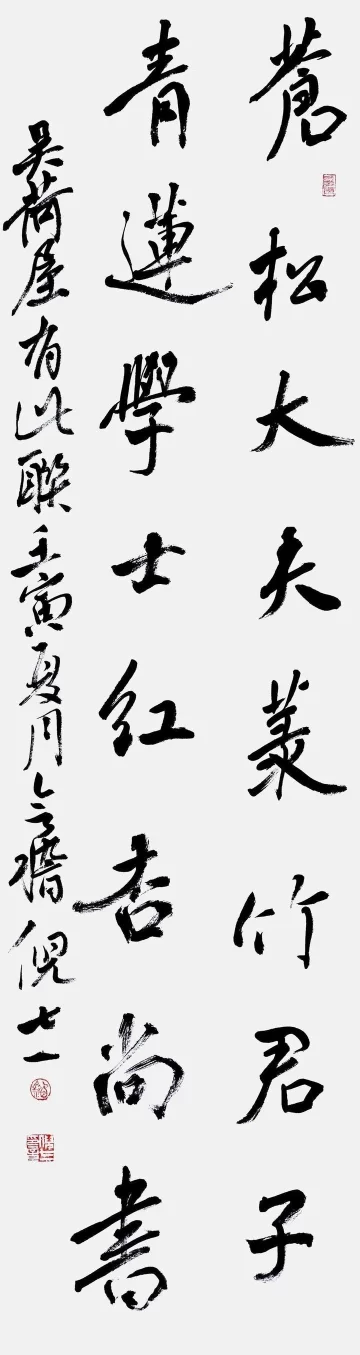 蒼松大夫菉竹君子
青蓮學士紅杏尚書
吴荷屋有此聯壬寅夏月倪七一